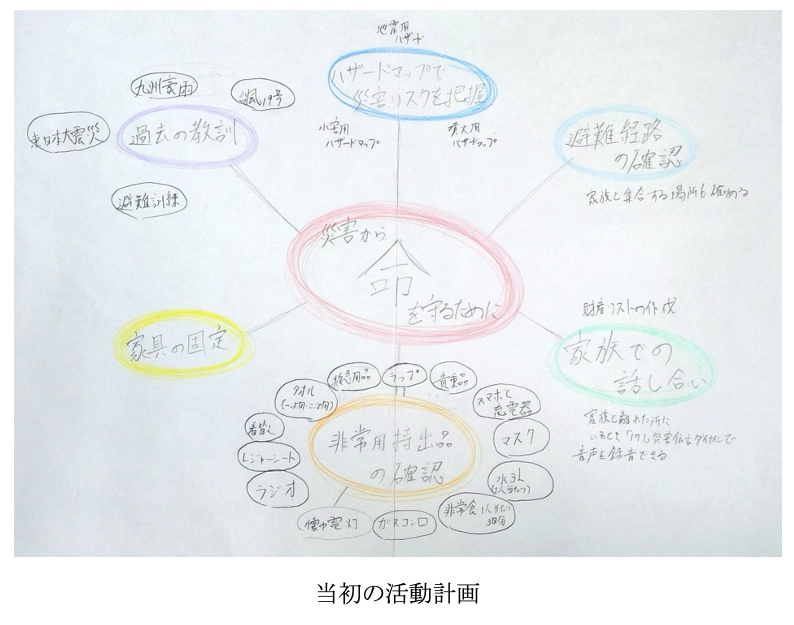 地震用
ハザード
ハザードマップで
災害リスクを把握
水害用
ハザードマップ
噴火用
ハザードマップ
九州豪雨
台風19号
東日本大震災
過去の教訓
避難訓練
避難経路
の確認
家族と集合する場所も確かめる
災害から
命
を守るために
家具の固定
財産リストの作成
家族での
話し合い
家族と離れた所に
いるとき「171」災害伝言ダイヤルで
音声を録音できる
非常用持出品
の確認
救急用品
ラップ
貴重品
スマホと
充電器
マスク
水3L
(1人当たり)
非常食 1人当たり
3日分
ガスコンロ
懐中電灯
ラジオ
レジャーシート
着替え
タオル
当初の活動計画